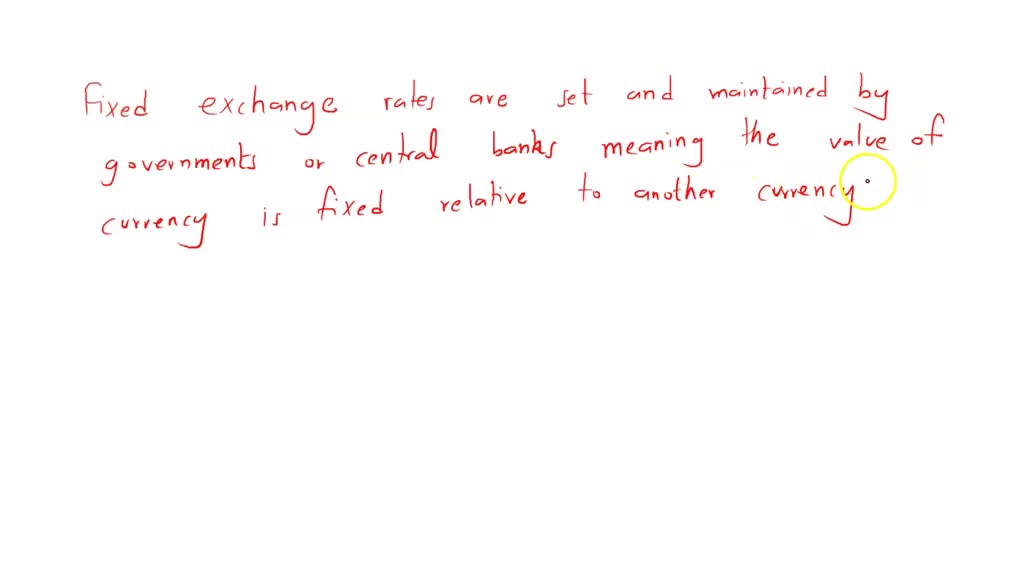 Fixed exchange rates are set and maintained by
governments or central banks meaning the value of
currency is fixed relative to another currency